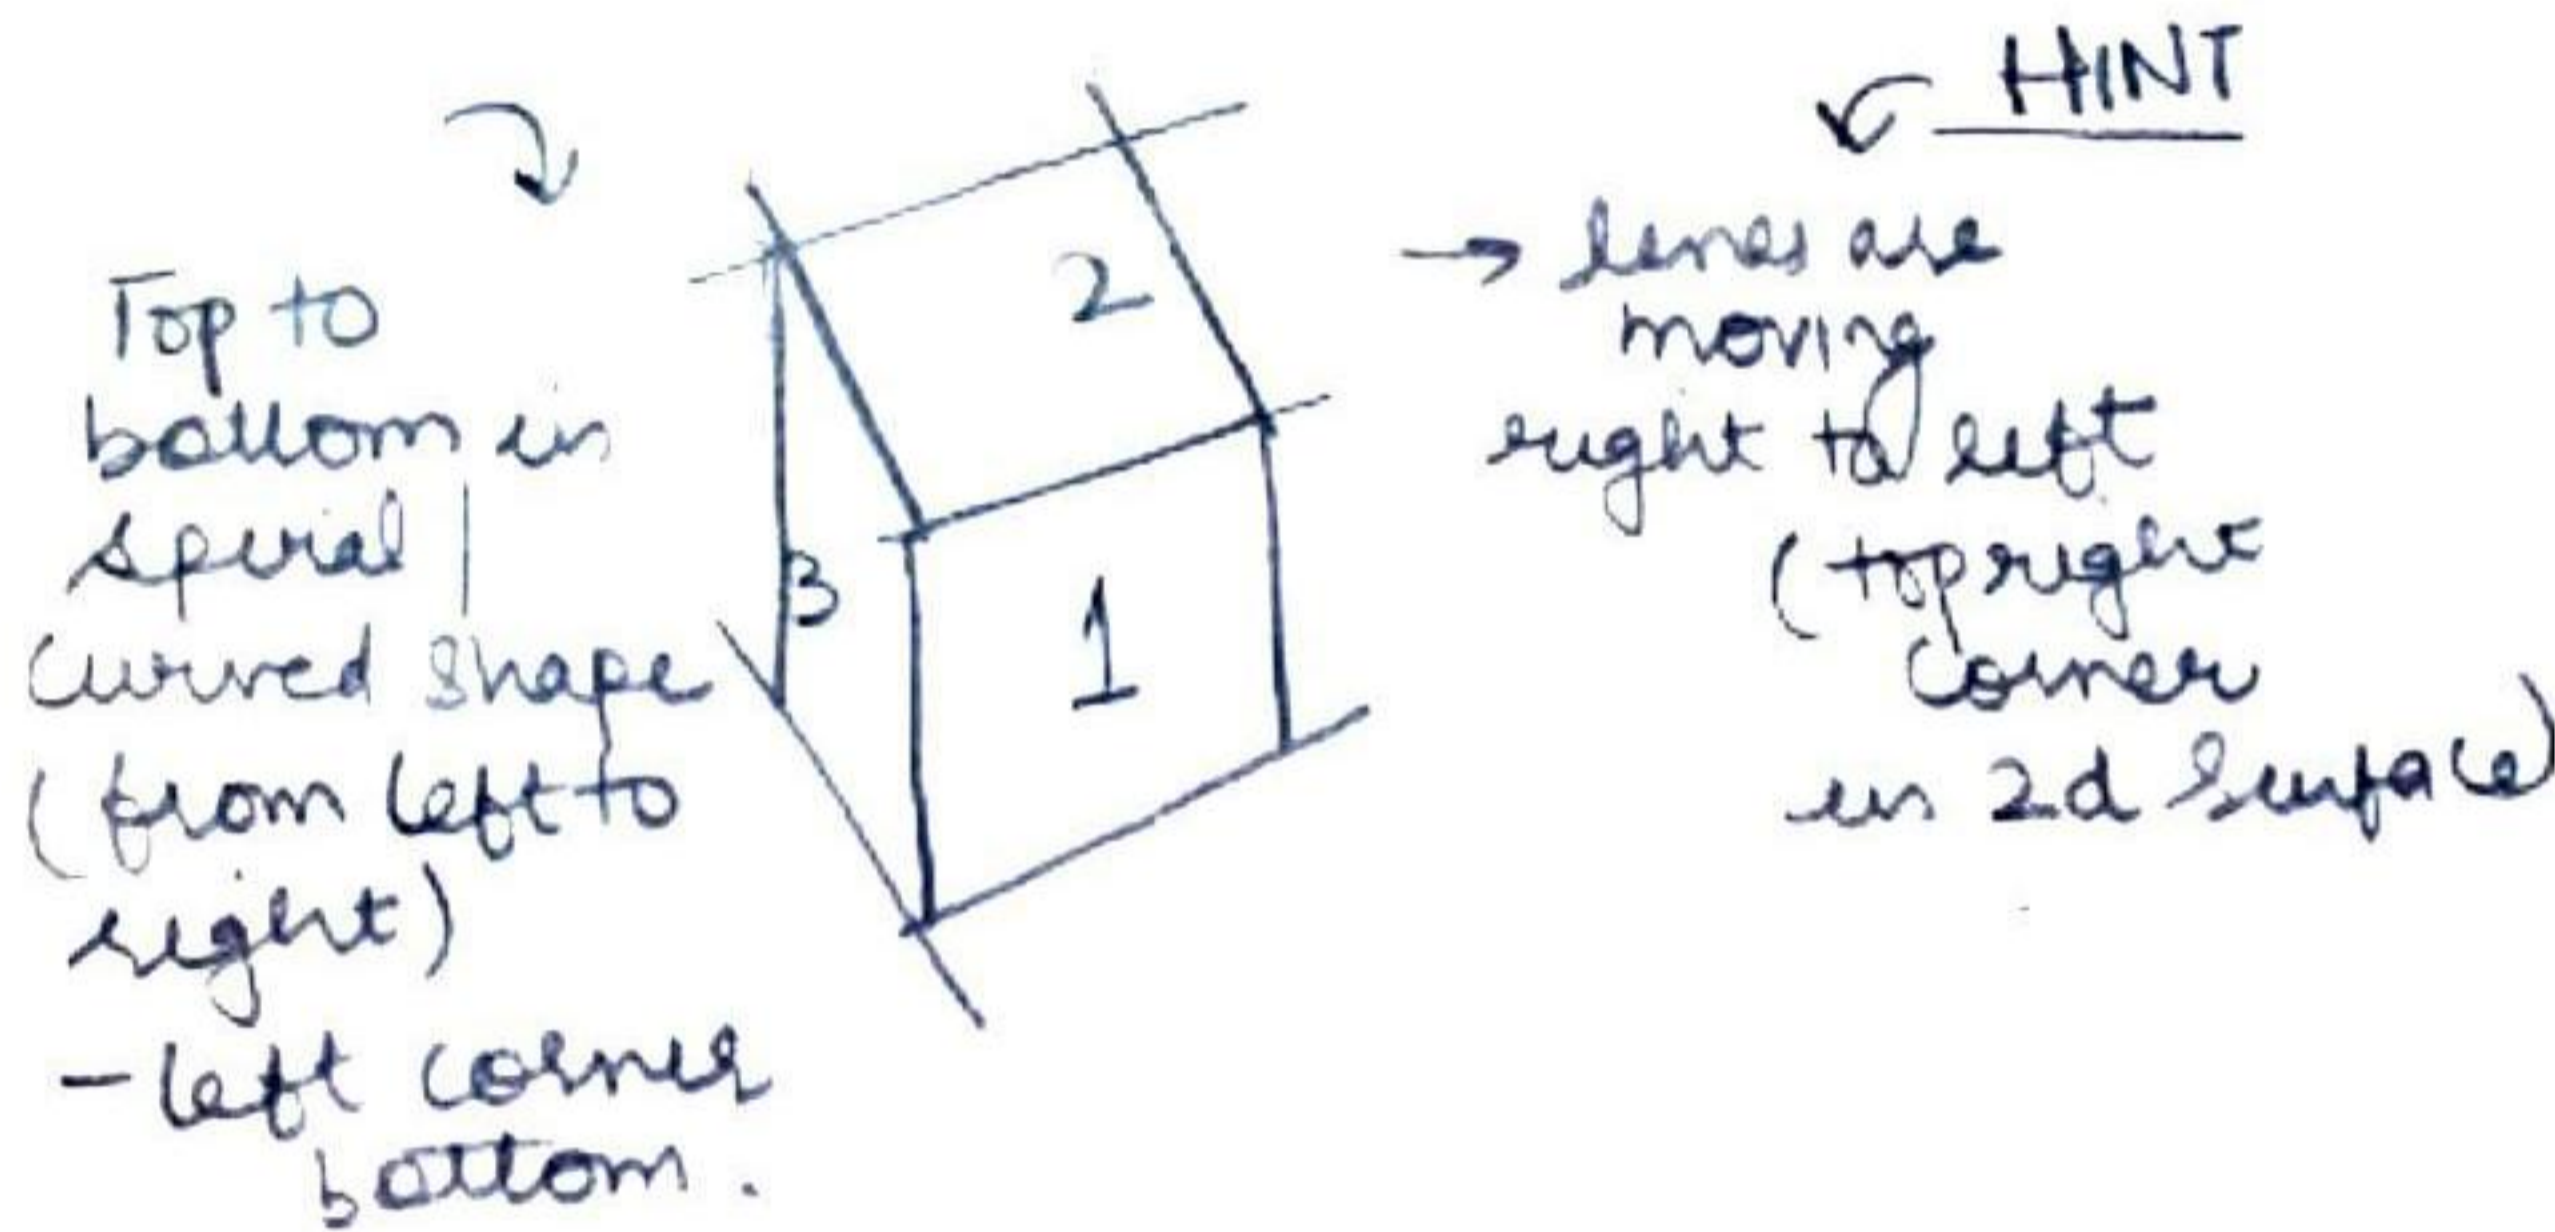 Top to
bottom in
spiral |
curved shape
(from left to
right)
- left corner
bottom.
2
3
1
HINT
→ lines are
moving
right to left
(top right
corner
in 2d surface)